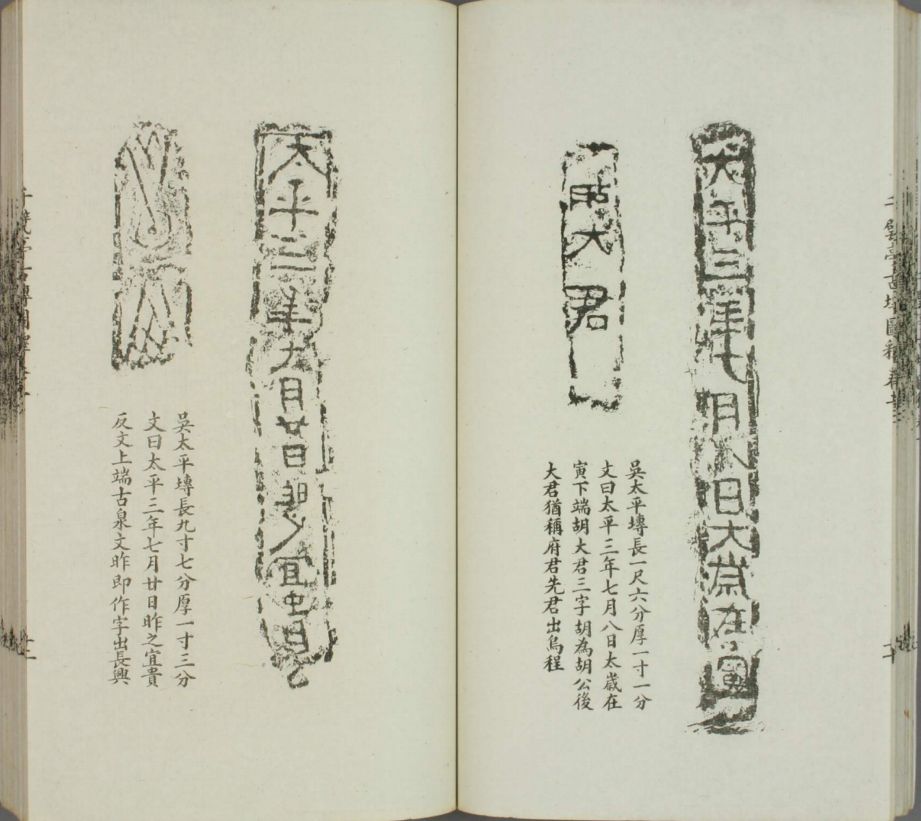 大平三年七月八日大歲在寅
胡大君
吳太平塼長一尺六分厚一寸一分
文曰太平三年七月八日太歲在
寅下端胡大君三字胡為胡公後
大君猶稱府君先君出烏程
大平三年七月廿日昨之宜貴
吳太平塼長九寸七分厚一寸三分
文曰太平三年七月廿日昨之宜貴
反文上端古泉文昨即作字出長興